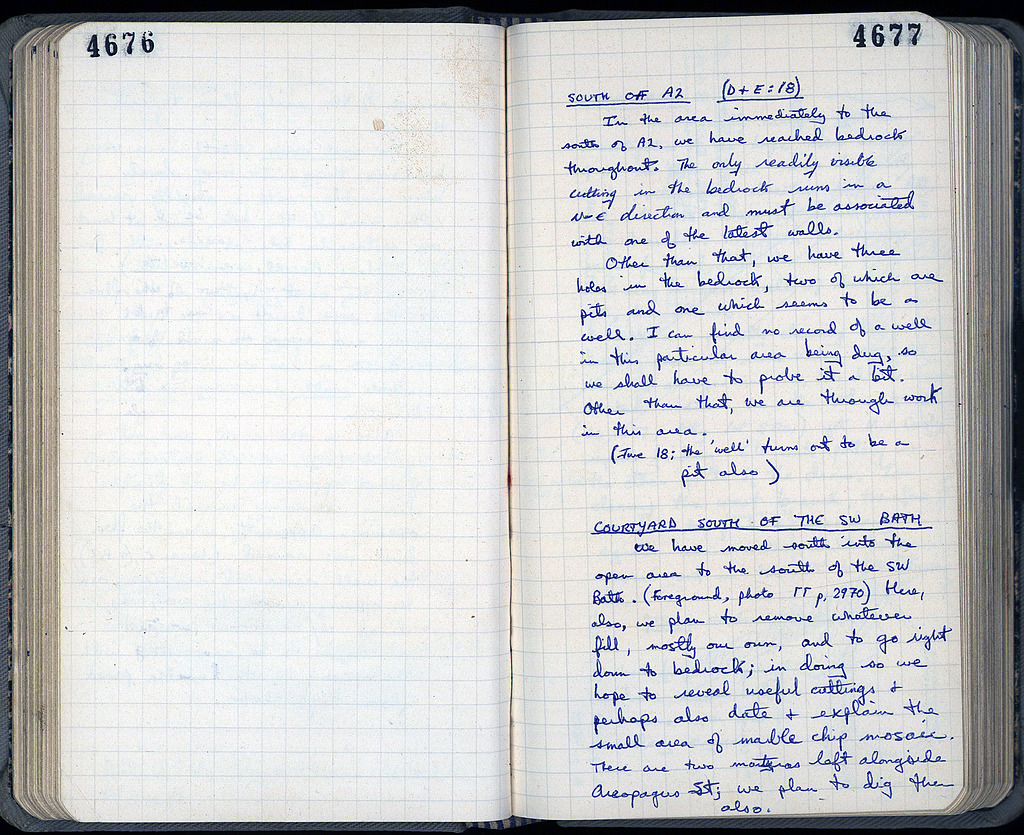 4676
4677
SOUTH OF A2 (D + E : 18)
In the area immediately to the
south of A2, we have reached bedrock
throughout. The only readily visible
cutting in the bedrock runs in a
N-E direction and must be associated
with one of the latest walls.
Other than that, we have three
holes in the bedrock, two of which are
pits and one which seems to be a
well. I can find no record of a well
in this particular area being dug, so
we shall have to probe it a bit.
Other than that, we are through work
in this area.
(June 18; the 'well' turns out to be a
pit also)
COURTYARD SOUTH OF THE SW BATH
We have moved south into the
open area to the south of the SW
Bath. (Foreground, photo ΓΓ p, 2970) Here,
also, we plan to remove whatever
fill, mostly our own, and to go right
down to bedrock; in doing so we
hope to reveal useful cuttings &
perhaps also date + explain the
small area of marble chip mosaic.
There are two martyras left alongside
Areopagus St; we plan to dig them
also.